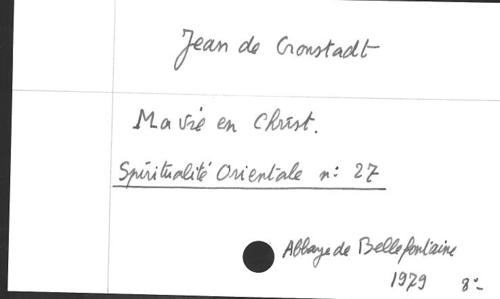 Jean de Cronstadt
Ma vie en Christ.
Spiritualité Orientale n: 27
Abbaye de Bellefontaine
1979 8°-